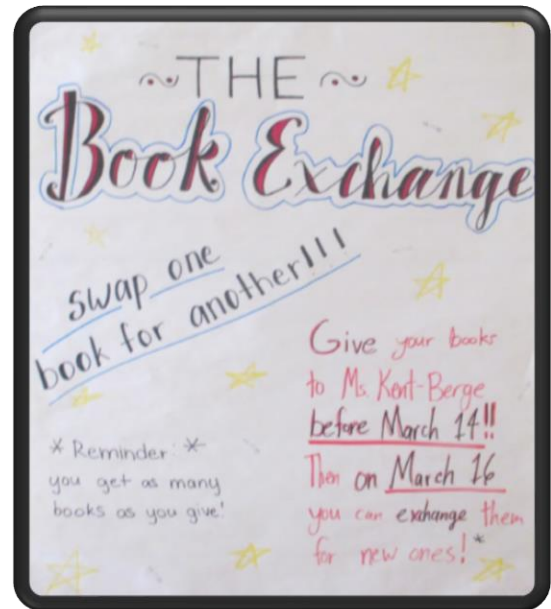 ~THE~
Book Exchange
swap one
book for another!!!
Give your books
to Ms. Kent-Berge
before March 14!!
Then on March 16
you can exhange them
for new ones!*
* Reminder: *
you get as many
books as you give!